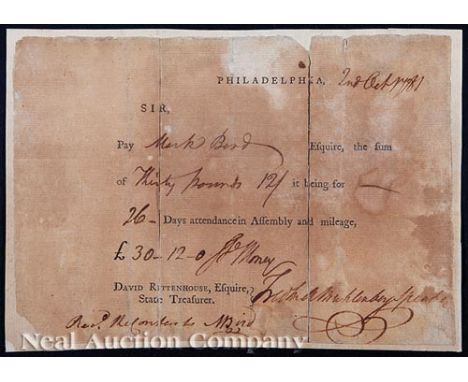 PHILADELPHIA, 2nd Oct 1781
SIR,
Pay Mark Bird Esquire, the sum
of Thirty pounds 12/ it being for
26 Days attendance in Assembly and mileage,
£ 30-12-0 Money
DAVID RITTENHOUSE, Esquire,
State Treasurer.
MBird
Neal Auction Company